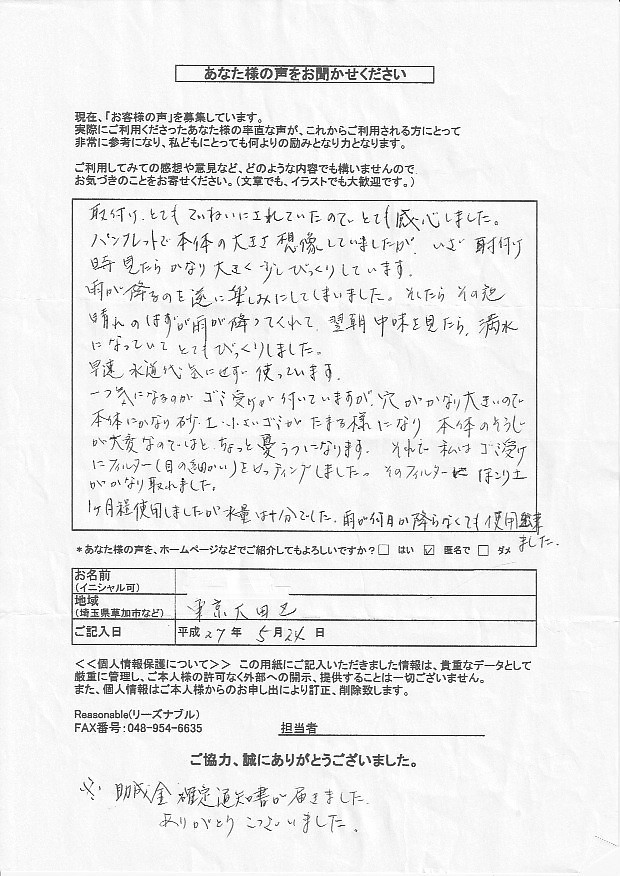 あなた様の声をお聞かせください
現在、「お客様の声」を募集しています。
実際にご利用くださったあなた様の率直な声が、これからご利用される方にとって
非常に参考になり、私どもにとっても何よりの励みとなり力となります。
ご利用してみての感想や意見など、どのような内容でも構いませんので、
お気づきのことをお寄せください。(文章でも、イラストでも大歓迎です。)
取付け、とてもていねいにされていたので、とても感心しました。
パンフレットで本体の大きさ想像していましたが、いざ取付け
時見たらかなり大きく少しびっくりしています。
雨が降るのを逆に楽しみにしてしまいました。そしたらその翌
晴れのはずが雨が降ってくれて、翌朝中味を見たら、満水
になっていてとてもびっくりしました。
早速水道代気にせず使っています。
一つ気になるのがゴミ受けが付いていますが、穴がかなり大きいので
本体にかなり砂・土・小さいゴミがたまる様になり 本体のそうじ
が大変なのでは、と、ちょっと憂うつになります。それで私はゴミ受け
にフィルター(目の細かい)をセッティングしました。そのフィルターに ほこり土
がかなり取れました。
1ヶ月程使用しましたが水量は十分でした。雨が何日か降らなくても使用出来
ました。
*あなた様の声を、ホームページなどでご紹介してもよろしいですか?□ はい ☑ 匿名で □ ダメ
お名前
(イニシャル可)
地域
(埼玉県草加市など) 東京大田区
ご記入日 平成27年 5月24日
<<個人情報保護について>> この用紙にご記入いただきました情報は、貴重なデータとして
厳重に管理し、ご本人様の許可なく外部への開示、提供することは一切ございません。
また、個人情報はご本人様からのお申し出により訂正、削除致します。
Reasonable(リーズナブル)
FAX番号:048-954-6635 担当者
ご協力、誠にありがとうございました。
※ 助成金確定通知書が届きました。
ありがとうございました。